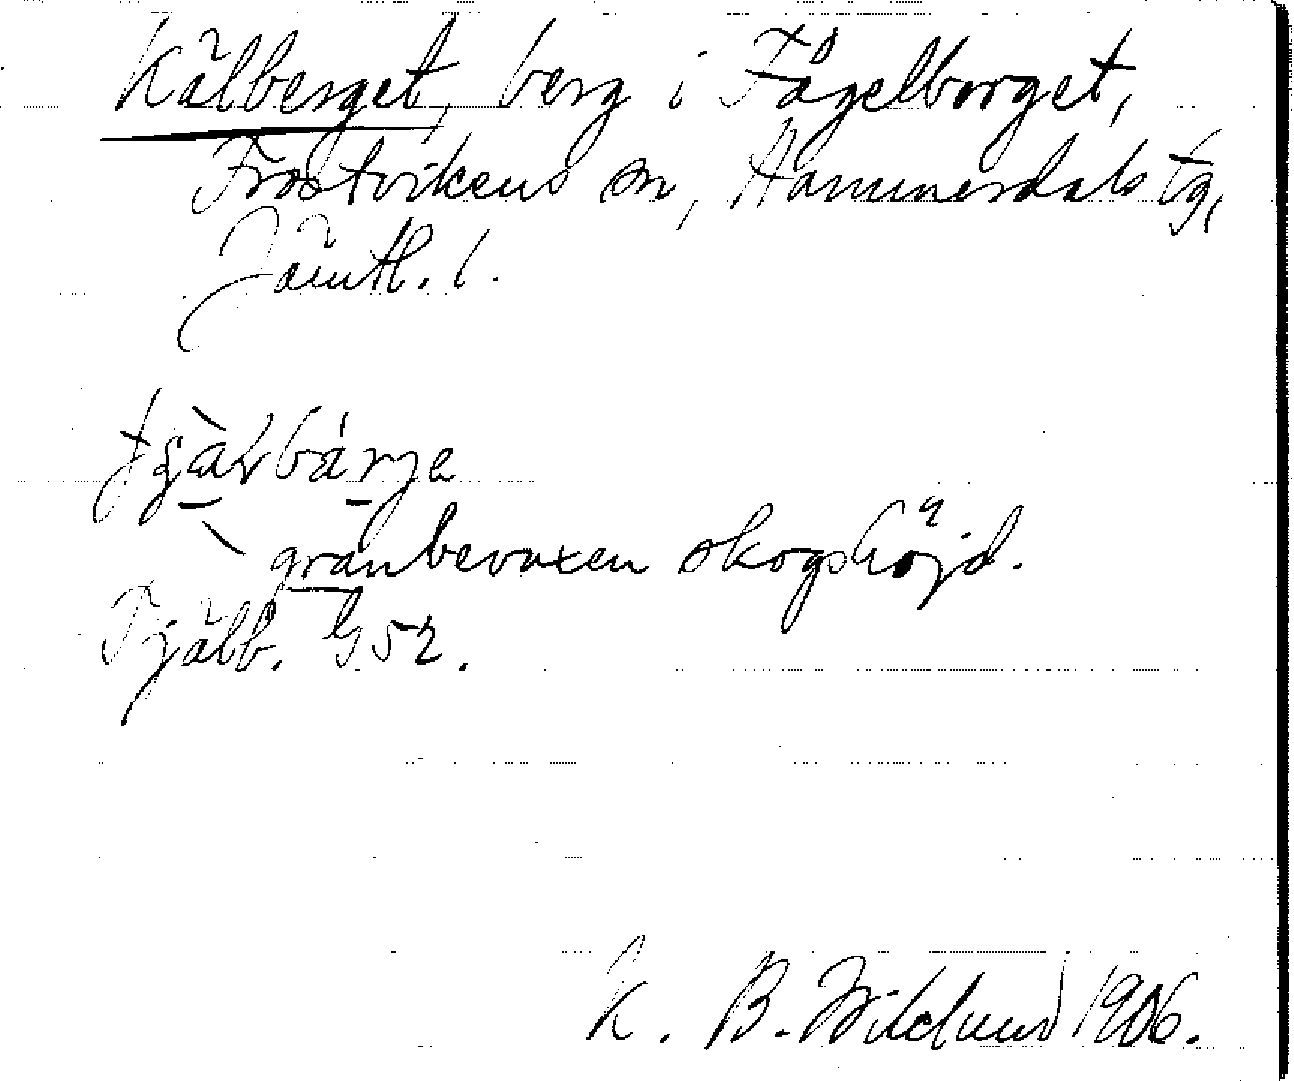 Kälberget, berg i Fågelberget,
Frostvikens sn, Hammerdals tg,
Jämtl. l.
granbevuxen skogshöjd.
Tjälb. G52.
K. B. Wiklund 1906.